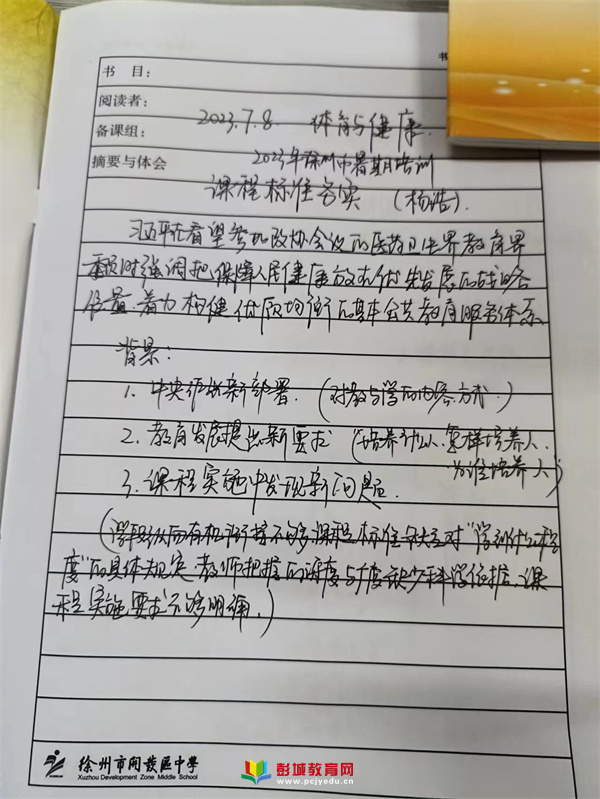 书
书 目：
阅读者：
备课组：
2023.7.8 体育与健康.
摘要与体会
2023年徐州市暑期培训
课程标准 (杨浩).
习近平在看望参加政协会议的医药卫生界教育界
时强调把保障人民健康放在优先发展的战略
位置.着力构建优质均衡的基本公共教育服务体系
背景：
1. 中央作出新部署. (对教与学的内容.方式.)
2. 教育发展提出新要求 (培养什么人.怎样培养人.
为谁培养人)
3. 课程实施中发现新问题.
(学段纵向有机衔接不够.课程标准缺乏对“学到什么程
度”的具体规定.教师把握的深度与广度缺少科学依据.课
程实施要求不够明确.)
徐州市开发区中学
Xuzhou Development Zone Middle School
彭城教育网
www.pcjyedu.cn